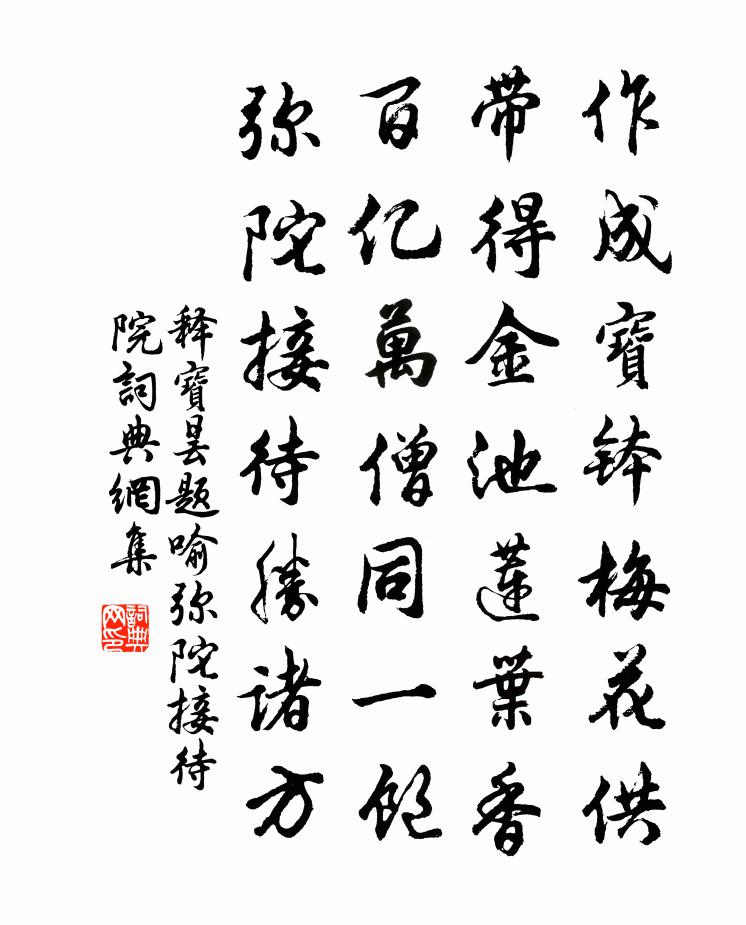 作成寶缽梅花供
帶得金池蓮葉香
百亿萬僧同一飽
弥陀接待勝諸方
释寶曇題喻弥陀接待
院詞典網集
詞典
网印